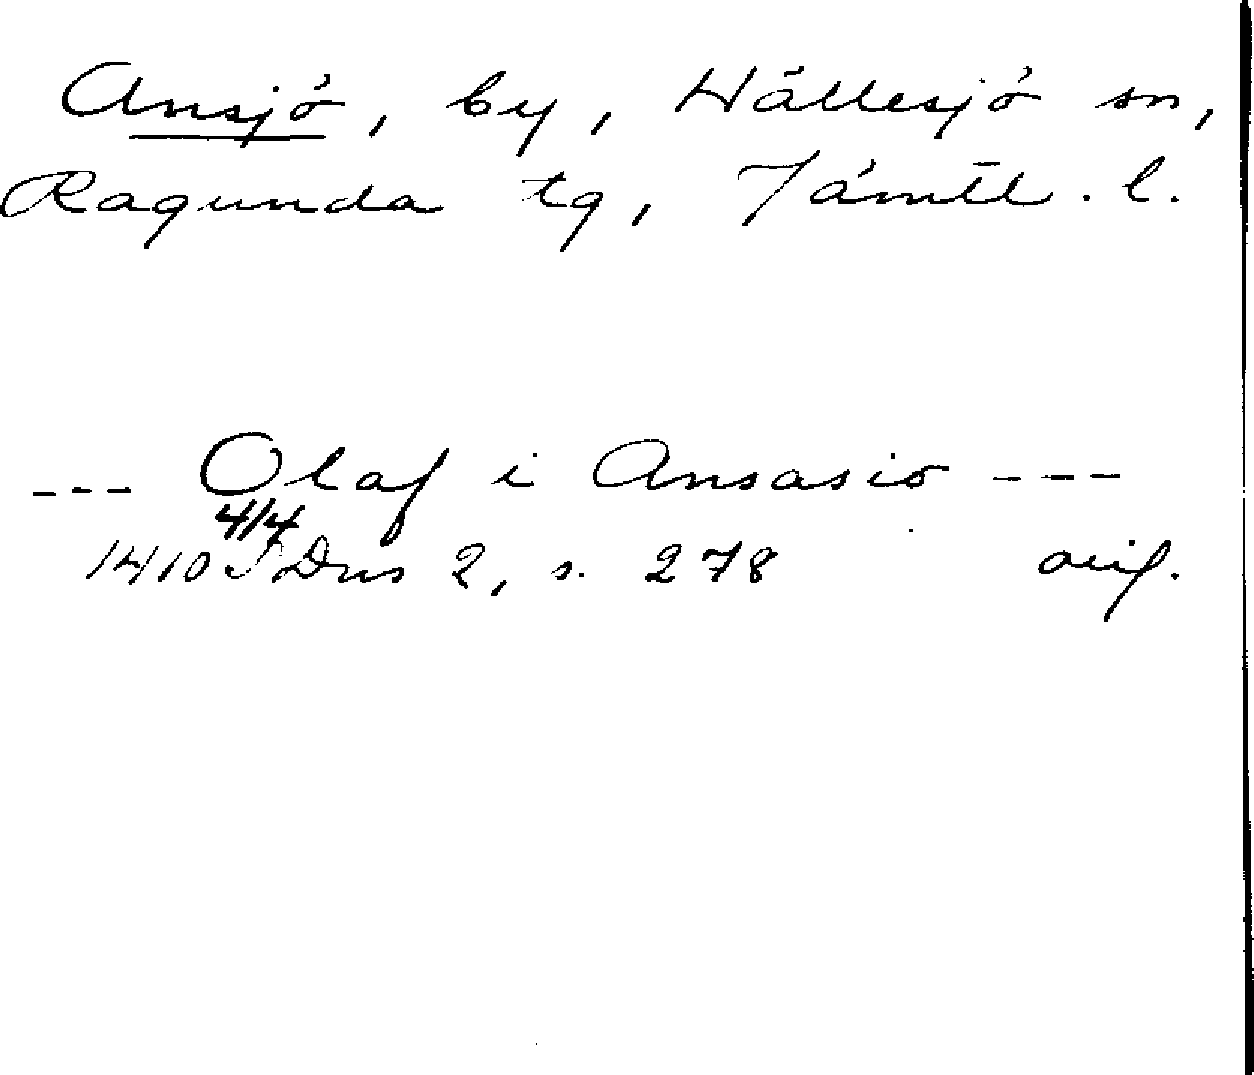 Ansjö, by, Hällesjö sn,
Ragunda tg, Jämtl. l.
--- Olaf i Ansasio ---
4/4
1410 JDns 2, s. 278 orig.